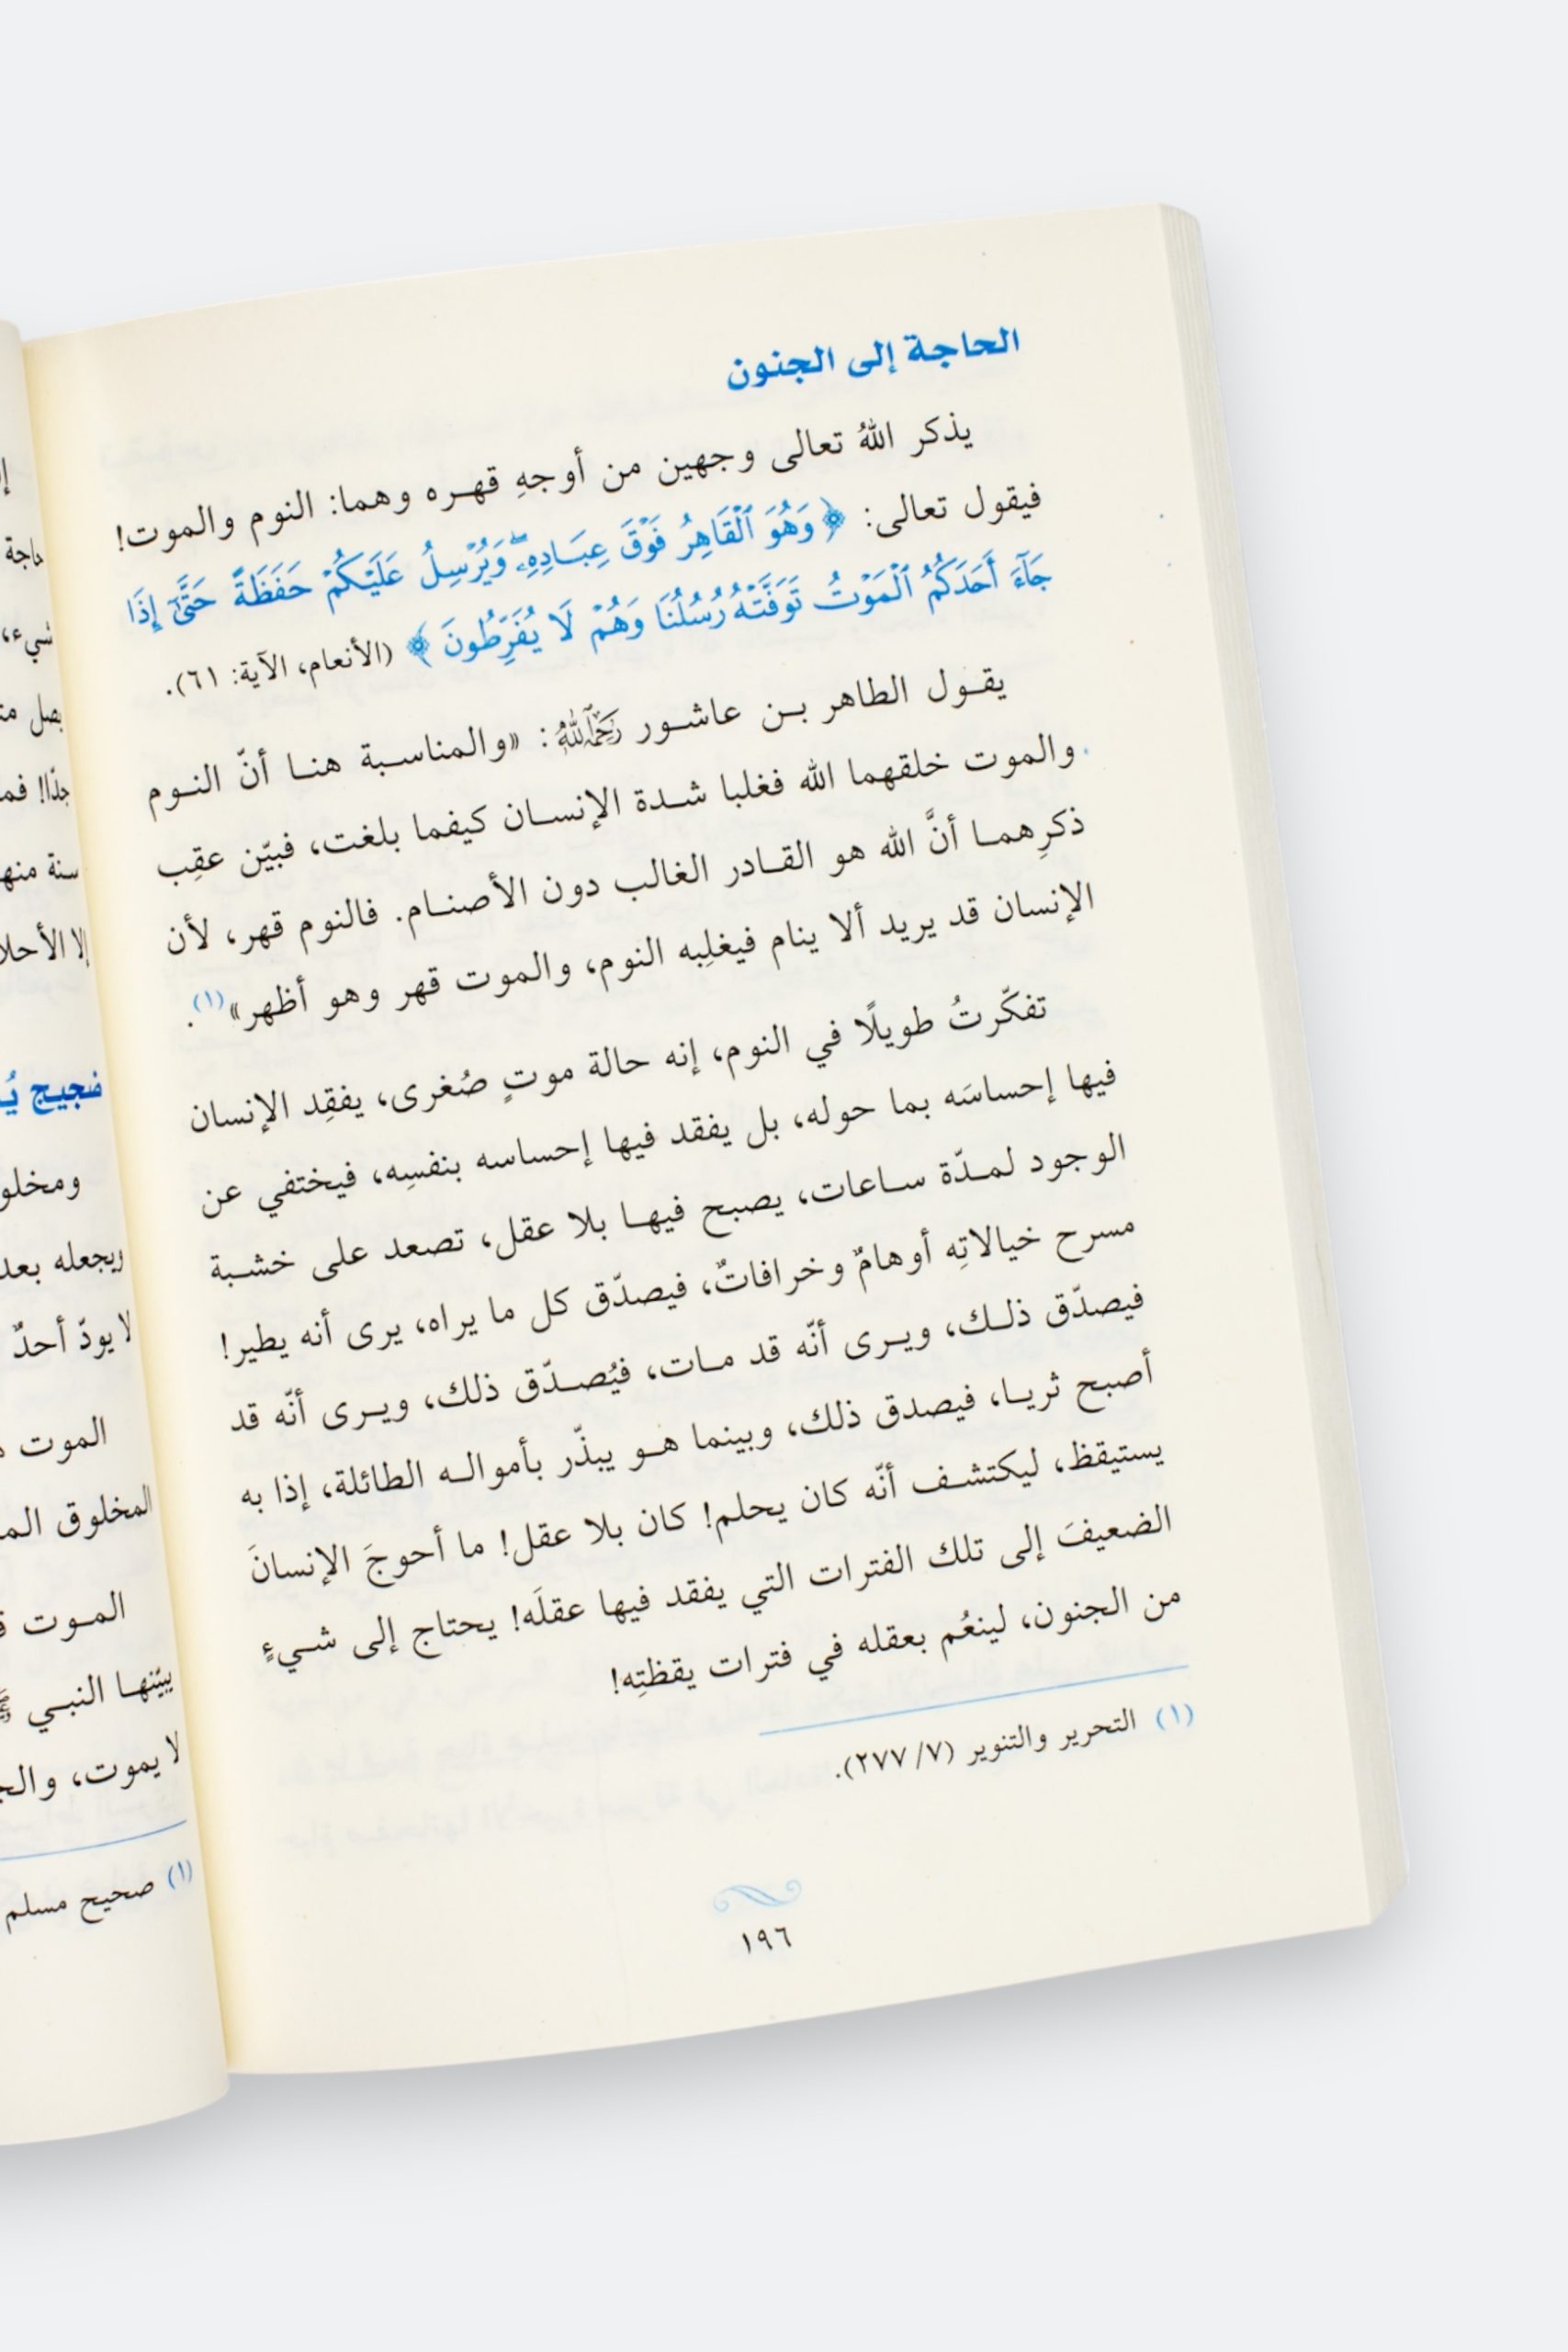 الحاجة إلى الجنون
يذكر اللهُ تعالى وجهين من أوجهِ قهره وهما: النوم والموت!
فيقول تعالى: ﴿وَهُوَ ٱلْقَاهِرُ فَوْقَ عِبَادِهِۦۖ وَيُرْسِلُ عَلَيْكُمْ حَفَظَةً حَتَّىٰٓ إِذَا
جَآءَ أَحَدَكُمُ ٱلْمَوْتُ تَوَفَّتْهُ رُسُلُنَا وَهُمْ لَا يُفَرِّطُونَ﴾ (الأنعام، الآية: ٦١).
يقول الطاهر بن عاشور رَحِمَهُ ٱللَّهُ: «والمناسبة هنا أنّ النوم
والموت خلقهما الله فغلبا شدة الإنسان كيفما بلغت، فبيّن عقِب
ذكرِهما أنَّ الله هو القادر الغالب دون الأصنام. فالنوم قهر، لأن
الإنسان قد يريد ألا ينام فيغلِبه النوم، والموت قهر وهو أظهر»(١).
تفكّرتُ طويلًا في النوم، إنه حالة موتٍ صُغرى، يفقِد الإنسان
فيها إحساسَه بما حوله، بل يفقد فيها إحساسه بنفسِه، فيختفي عن
الوجود لمدّة ساعات، يصبح فيها بلا عقل، تصعد على خشبة
مسرح خيالاتِه أوهامٌ وخرافاتٌ، فيصدّق كل ما يراه، يرى أنه يطير!
فيصدّق ذلك، ويرى أنّه قد مات، فيُصدّق ذلك، ويرى أنّه قد
أصبح ثريا، فيصدق ذلك، وبينما هو يبذّر بأمواله الطائلة، إذا به
يستيقظ، ليكتشف أنّه كان يحلم! كان بلا عقل! ما أحوجَ الإنسانَ
الضعيفَ إلى تلك الفترات التي يفقد فيها عقلَه! يحتاج إلى شيءٍ
من الجنون، لينعُم بعقله في فترات يقظتِه!
(١) التحرير والتنوير (٧/ ٢٧٧).
١٩٦
حاجة
شيء،
يصل
جدًّا! فما
سنة منها
إلا
ضجيج
ويجعله بعد
لا يودّ أحدٌ
الموت
المخلوق
الموت
يبيّنها النبي ﷺ
لا يموت،
(١) صحيح مسلم